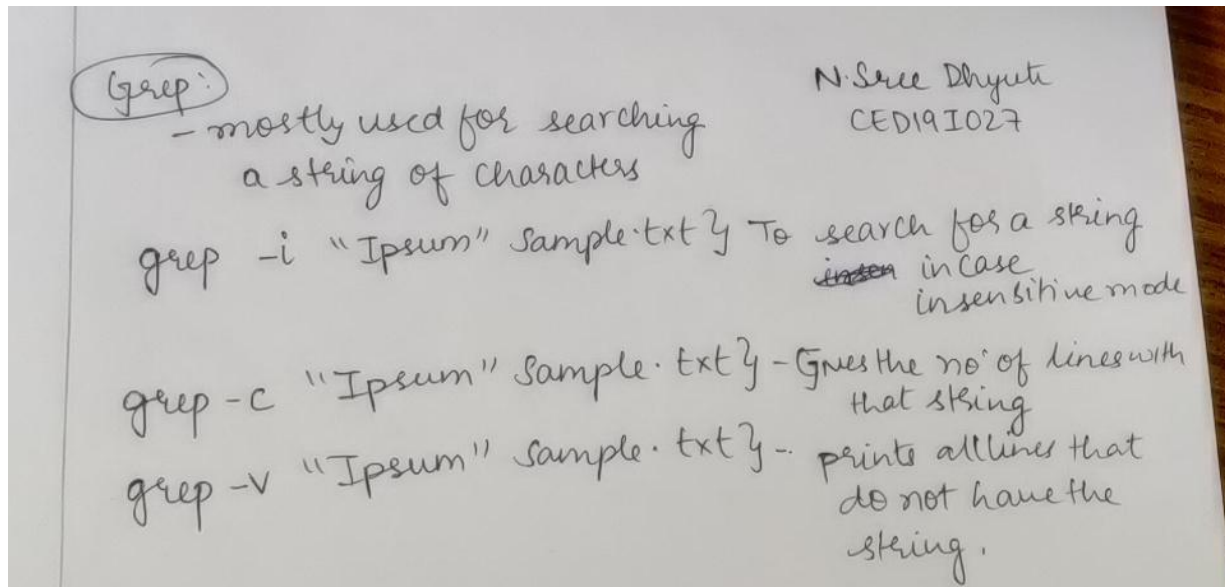 Grep:
N. Sree Dhyuti
CED19I027
- mostly used for searching
a string of characters
grep -i "Ipsum" Sample.txt } To search for a string
in case
insensitive mode
grep -c "Ipsum" Sample.txt } - Gives the no of lines with
that string
grep -v "Ipsum" Sample.txt } - prints all lines that
do not have the
string.